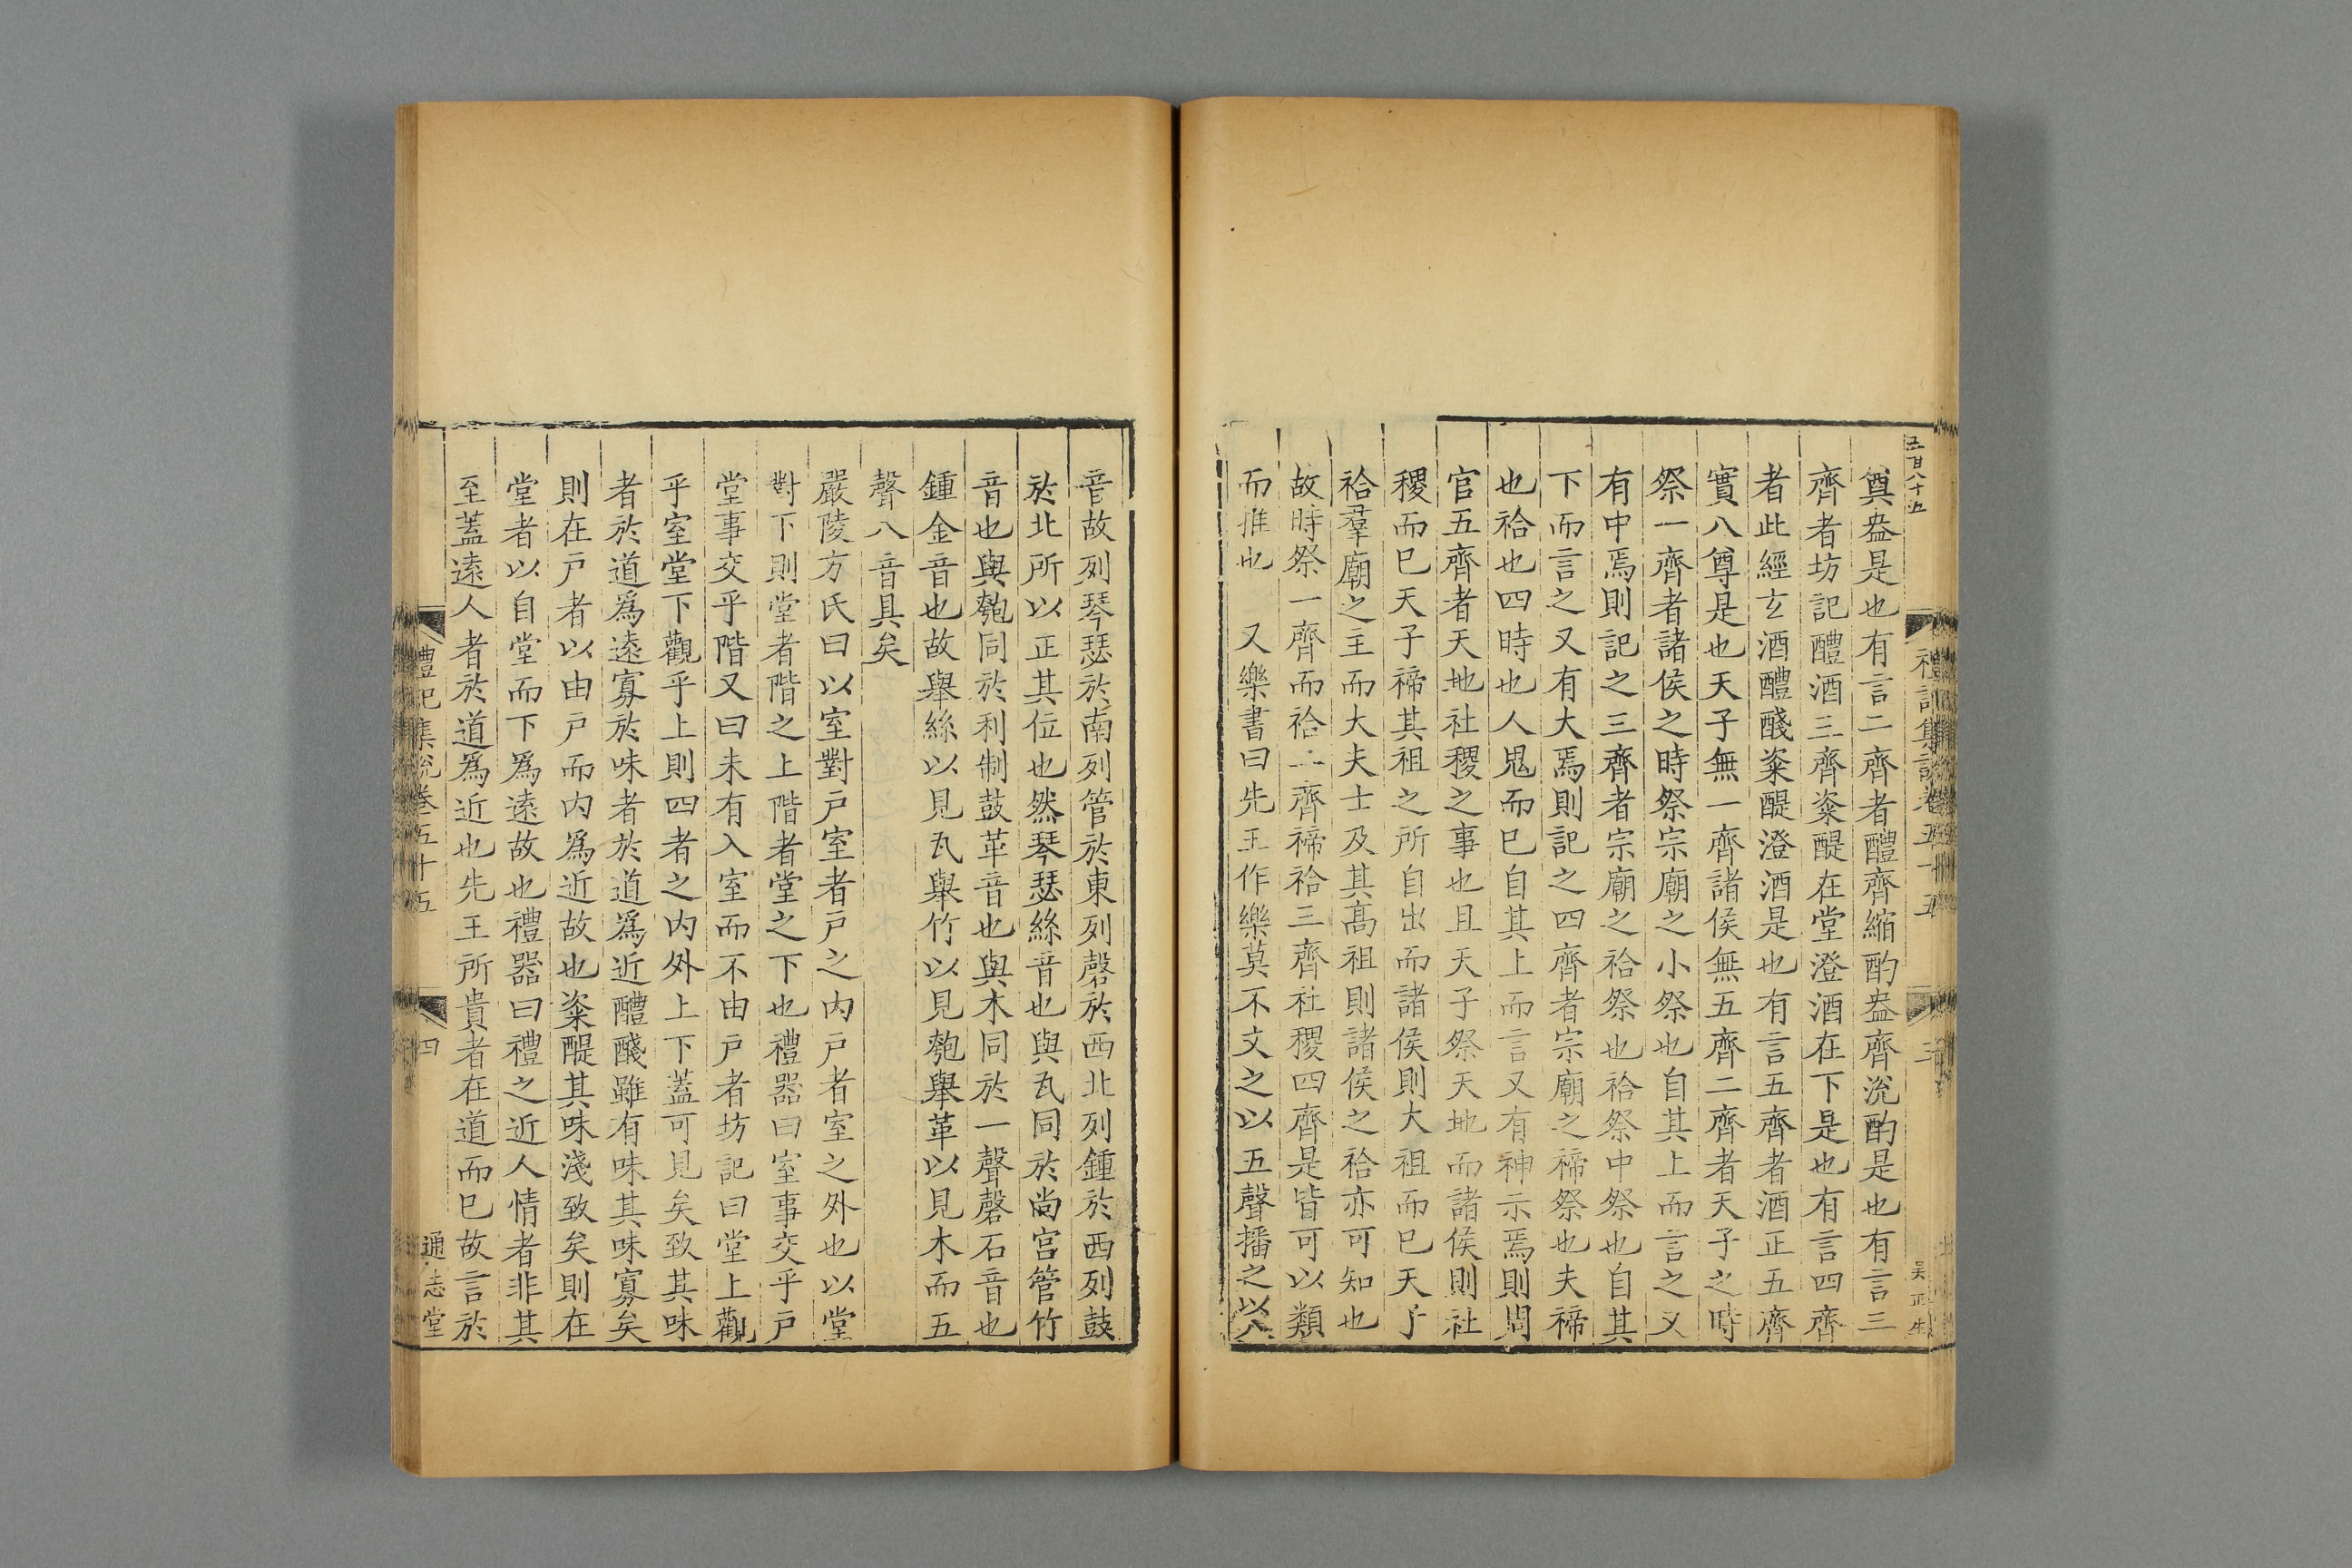 五百八十五
禮記集說卷五十五
三
吳正生
奠盎是也有言二齊者醴齊縮酌盎齊涗酌是也有言三
齊者坊記醴酒三齊粢醍在堂澄酒在下是也有言四齊
者此經玄酒醴醆粢醍澄酒是也有言五齊者酒正五齊
實八尊是也天子無一齊諸侯無五齊二齊者天子之時
祭一齊者諸侯之時祭宗廟之小祭也自其上而言之又
有中焉則記之三齊者宗廟之祫祭也祫祭中祭也自其
下而言之又有大焉則記之四齊者宗廟之禘祭也夫禘
也祫也四時也人鬼而已自其上而言又有神示焉則周
官五齊者天地社稷之事也且天子祭天地而諸侯則社
稷而已天子禘其祖之所自出而諸侯則大祖而已天子
祫羣廟之主而大夫士及其高祖則諸侯之祫亦可知也
故時祭一齊而祫二齊禘祫三齊社稷四齊是皆可以類
而推也　又樂書曰先王作樂莫不文之以五聲播之以八
音故列琴瑟於南列管於東列磬於西北列鍾於西列鼓
於北所以正其位也然琴瑟絲音也與瓦同於尚宮管竹
音也與匏同於利制鼓革音也與木同於一聲磬石音也
鍾金音也故舉絲以見瓦舉竹以見匏舉革以見木而五
聲八音具矣
嚴陵方氏曰以室對戶室者戶之內戶者室之外也以堂
對下則堂者階之上階者堂之下也禮器曰室事交乎戶
堂事交乎階又曰未有入室而不由戶者坊記曰堂上觀
乎室堂下觀乎上則四者之內外上下蓋可見矣致其味
者於道爲遠寡於味者於道爲近醴醆雖有味其味寡矣
則在戶者以由戶而內爲近故也粢醍其味淺致矣則在
堂者以自堂而下爲遠故也禮器曰禮之近人情者非其
至蓋遠人者於道爲近也先王所貴者在道而已故言於
禮記集說卷五十五
四
通志堂